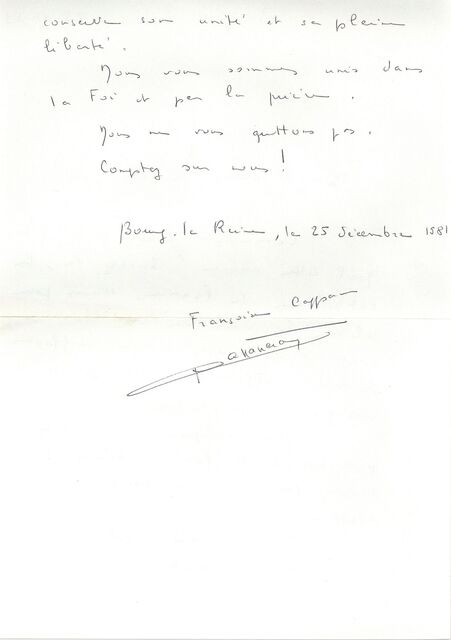 conserver son unité et sa pleine
liberté.
Nous vous sommes unis dans
la Foi et par la prière.
Nous ne vous quittons pas.
Comptez sur nous!
Bourg-la Reine, le 25 décembre 1981
Françoise